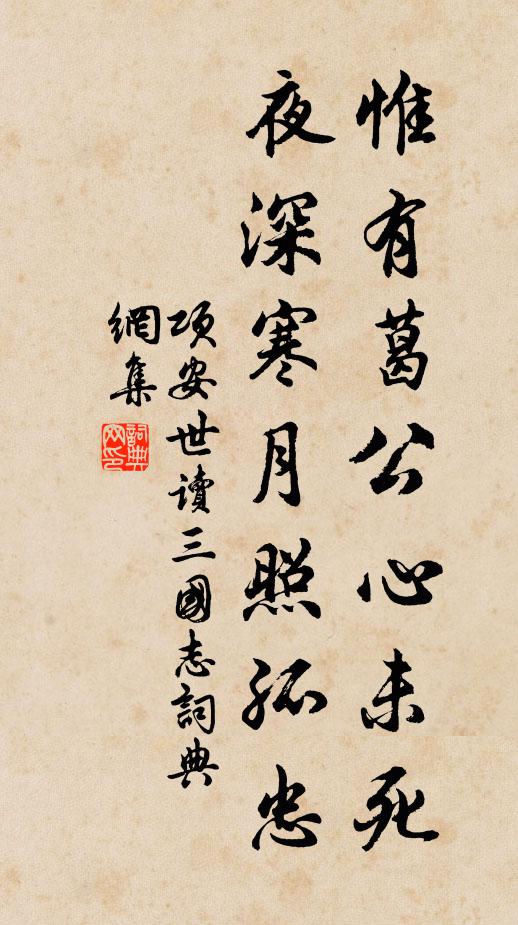 惟有葛公心未死
夜深寒月照孤忠
項安世讀三國志詞典
網集
詞典
网印